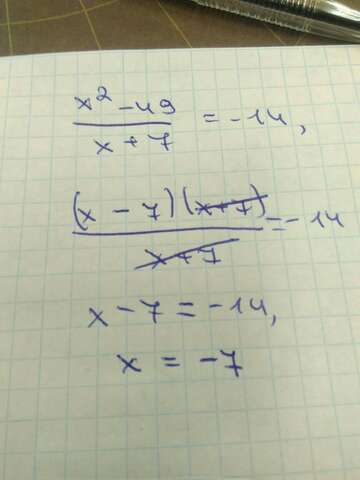 x² - 49 / x + 7 = -14,
(x - 7)(x+7) / x+7 = -14
x - 7 = -14,
x = -7